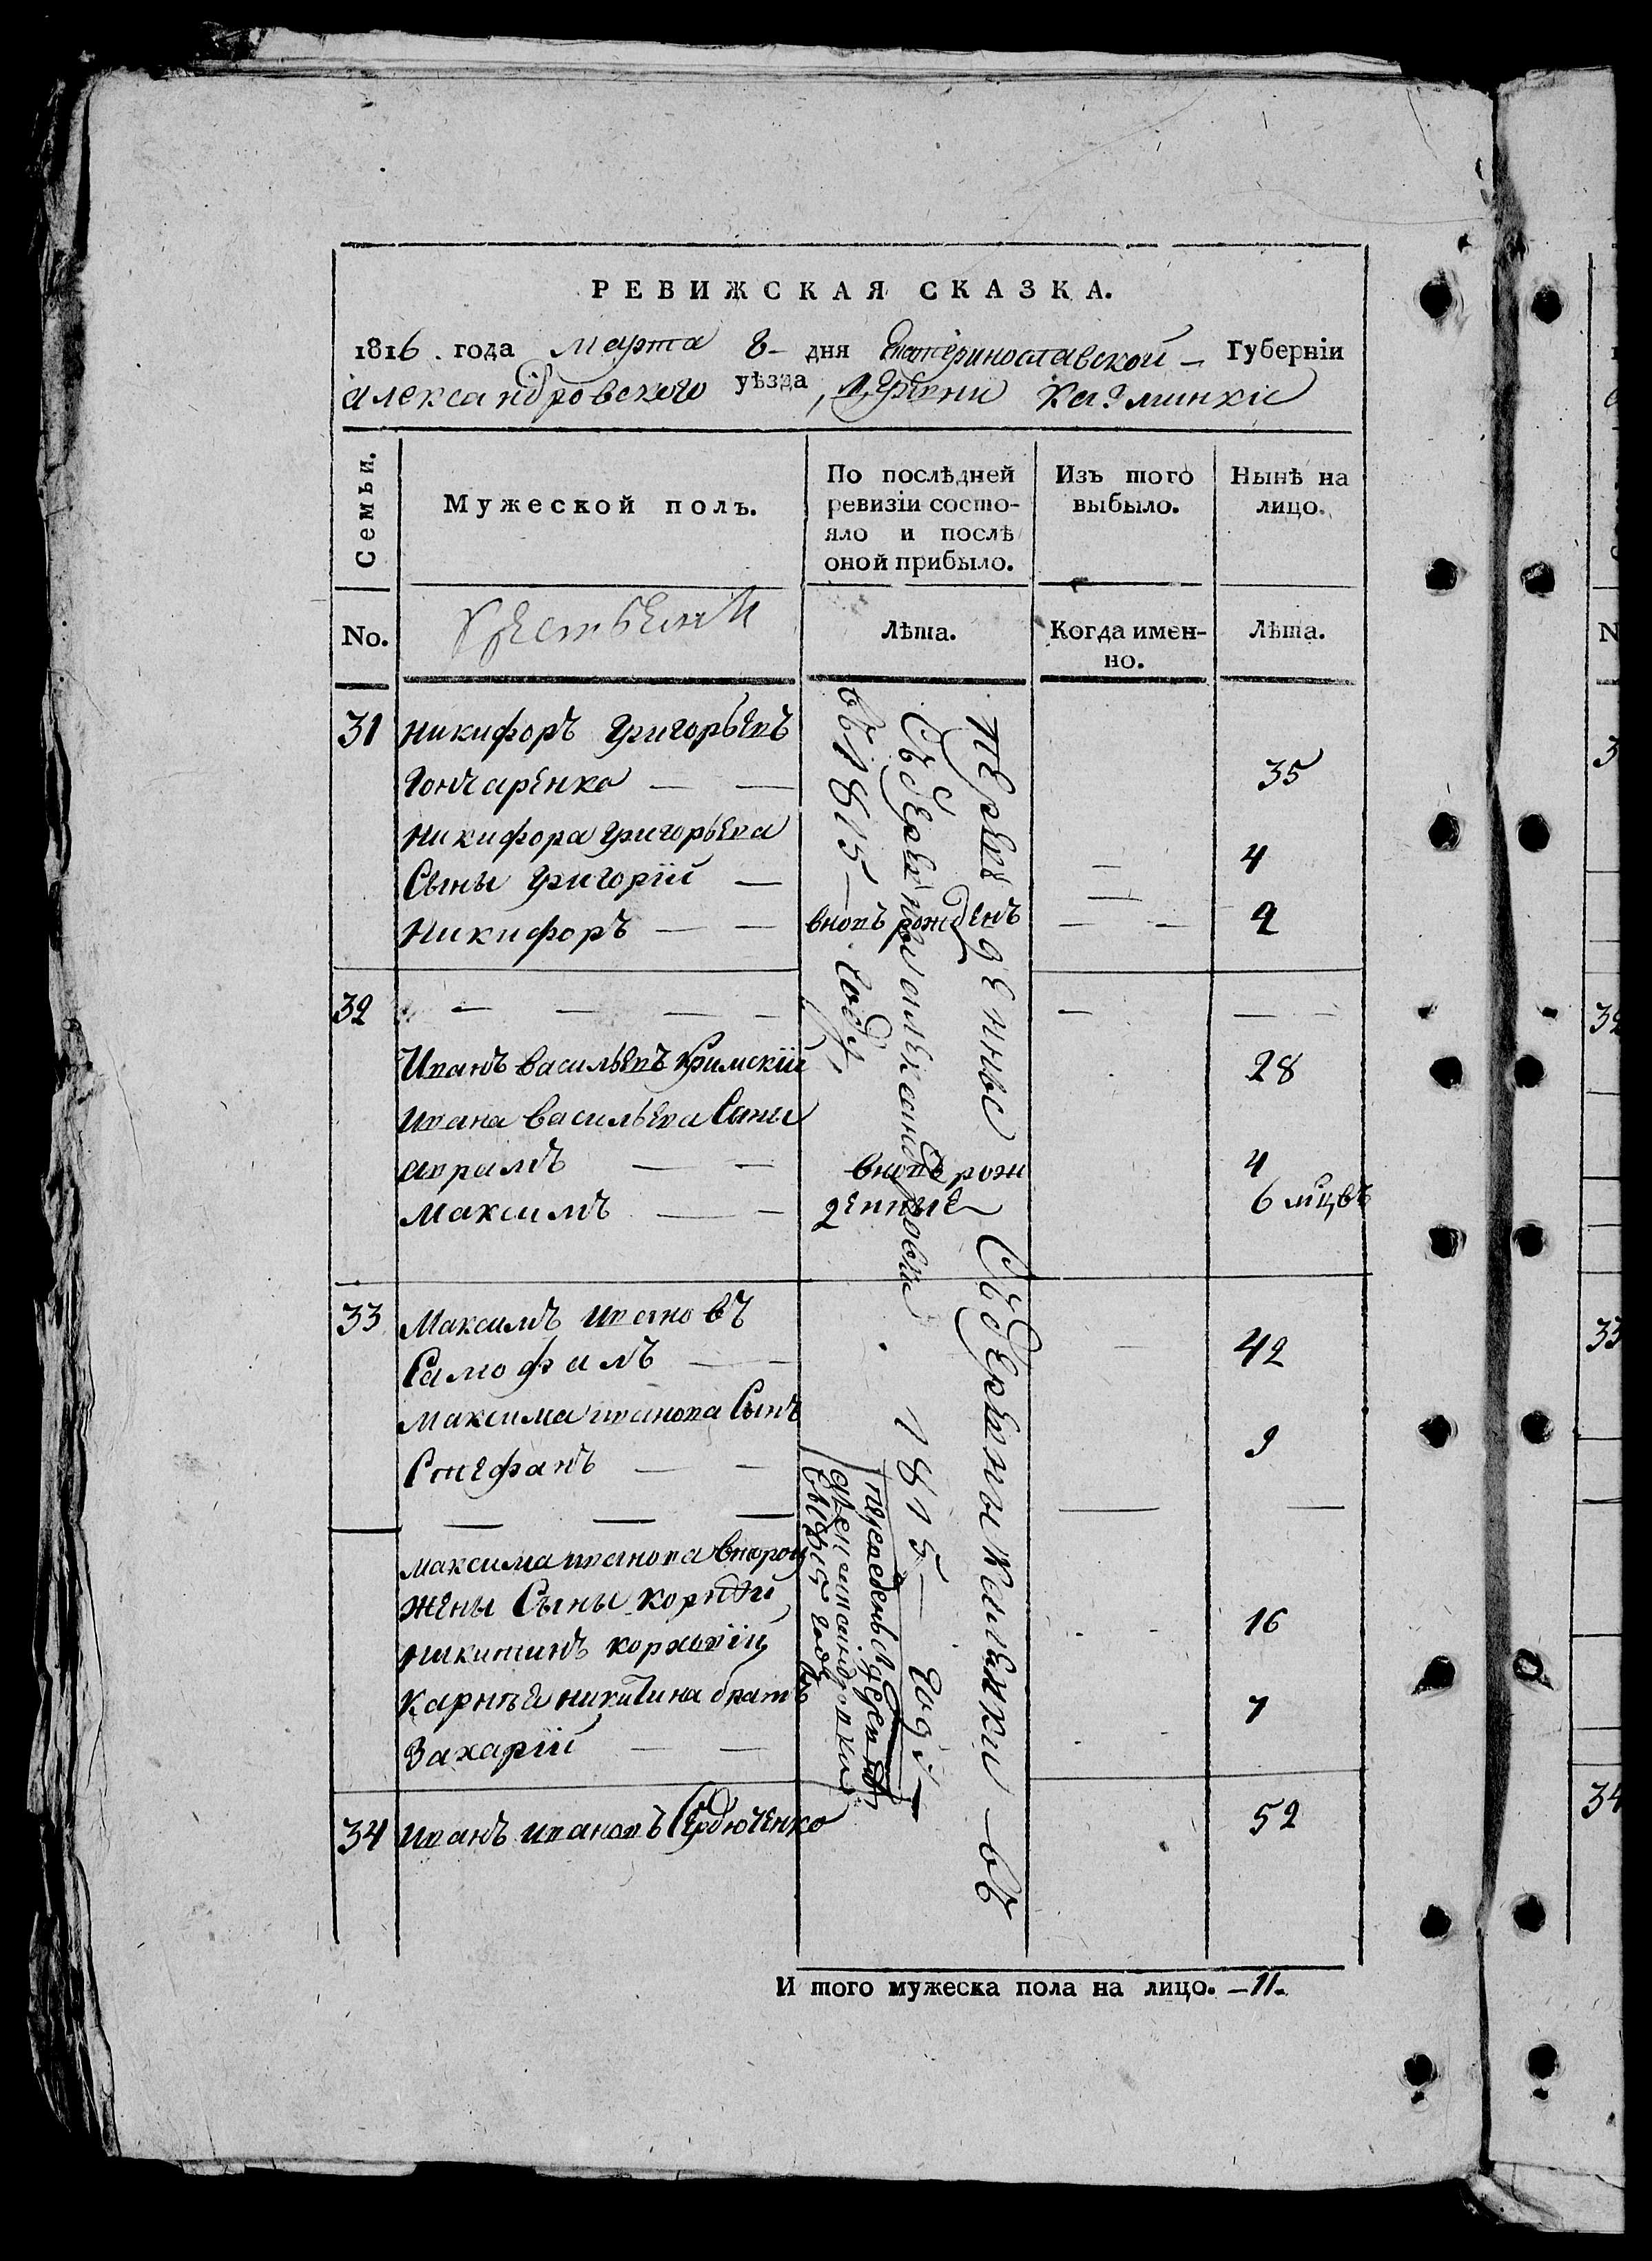 РЕВИЖСКАЯ СКАЗКА.
1816. года марта 8- дня Екатеринославской – Губерніи
александровскаго уѣзда, деревни
Семьи.
Мужеской полъ.
По послѣдней ревизіи состо-
яло и послѣ
оной прибыло.
Изъ того
выбыло.
Нынѣ на
лицо.
No.
Лѣта.
Когда имен-
но.
Лѣта.
31 никифоръ Григорьевъ
Гончаренко — — 35
Никифора Григорьева
Сыны Григорій — 4
Никифоръ — — вновь рожденъ — — 2
32 — — — —
Иванъ Васильевъ Кримскій 28
Ивана Васильева Сыны
аврамъ — — вновь рож 4
Максимъ — — денные 6 мцвъ
33 Максимъ ивановъ
Самофалъ — — 42
Максима иванова Сынъ
Стефанъ — — 9
— — —
максима иванова второй
жены Сыны
никитинъ 16
никитина братъ 7
Захарій — —
34 Иванъ ивановъ Сердюченко 52
переведенные Съ деревни въ
Съ деревни александровки 1815 – году
въ 1815 – году
И того мужеска пола на лицо. – 11.